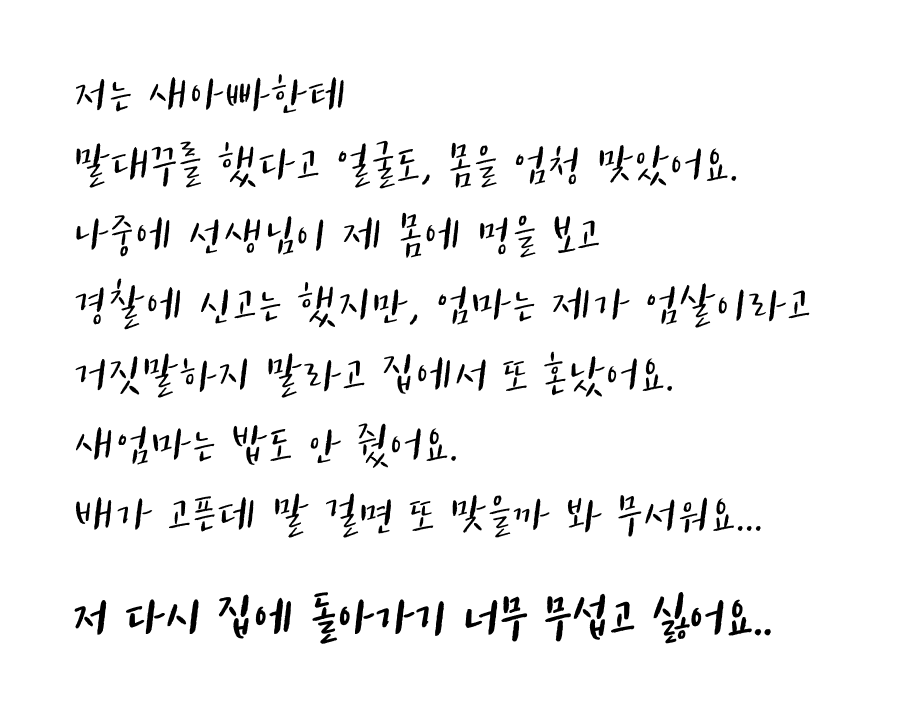 저는 새아빠한테
말대꾸를 했다고 얼굴도, 몸을 엄청 맞았어요.
나중에 선생님이 제 몸에 멍을 보고
경찰에 신고는 했지만, 엄마는 제가 엄살이라고
거짓말하지 말라고 집에서 또 혼났어요.
새엄마는 밥도 안 줬어요.
배가 고픈데 말 걸면 또 맞을까 봐 무서워요...
저 다시 집에 돌아가기 너무 무섭고 싫어요..